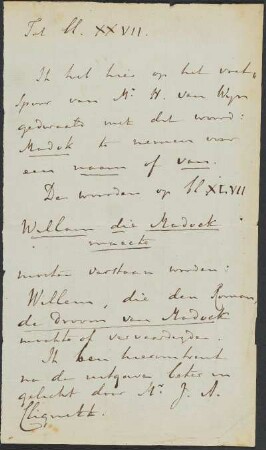 Tot bl. XXVII.
Ik heb hier op het voet-
spoor van Mr. H. van Wyn
gedwaald met dit woord:
Madok te nemen voor
een naam of van.
De woorden op bl. XLVII
Willam die Madock
maecte
moeten verstaan worden:
Willem, die den Roman,
de Droom van Madock
maakte of vervaardigde.
Ik ben hieromtrent
na de uitgave beter in
gelicht door Mr. J. A.
Clignett.